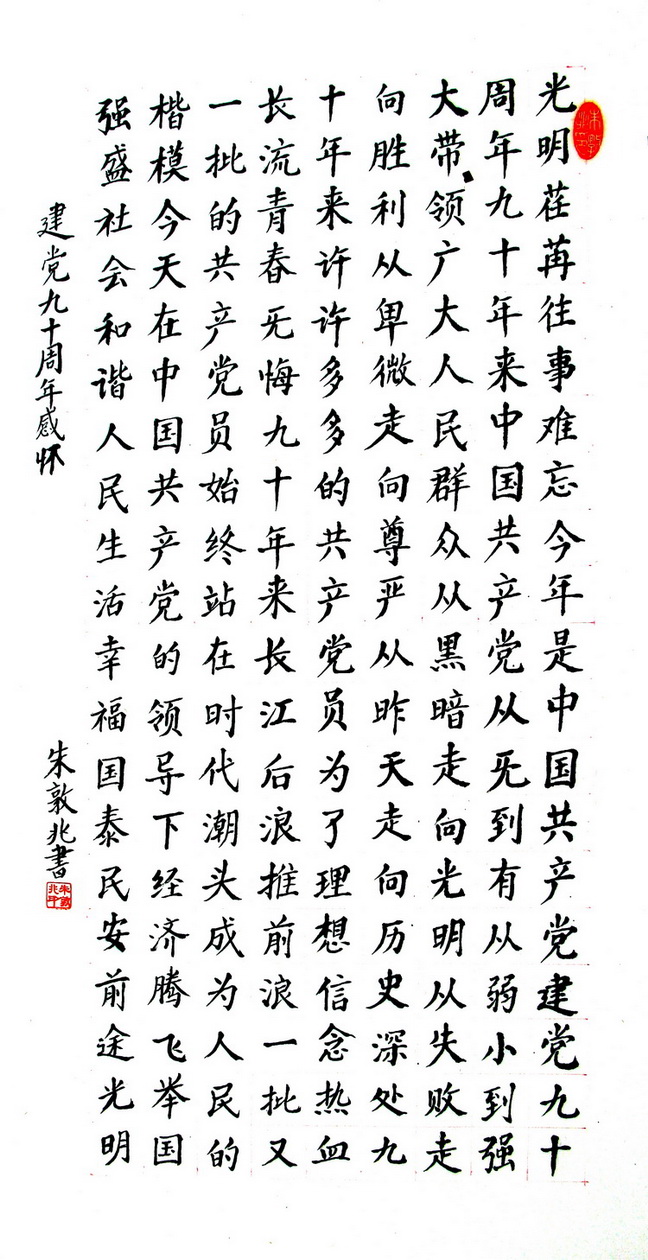 光明荏苒往事难忘今年是中国共产党建党九十
周年九十年来中国共产党从无到有从弱小到强
大带领广大人民群众从黑暗走向光明从失败走
向胜利从卑微走向尊严从昨天走向历史深处九
十年来许许多多的共产党员为了理想信念热血
长流青春无悔九十年来长江后浪推前浪一批又
一批的共产党员始终站在时代潮头成为人民的
楷模今天在中国共产党的领导下经济腾飞举国
强盛社会和谐人民生活幸福国泰民安前途光明
建党九十周年感怀
朱敦兆書